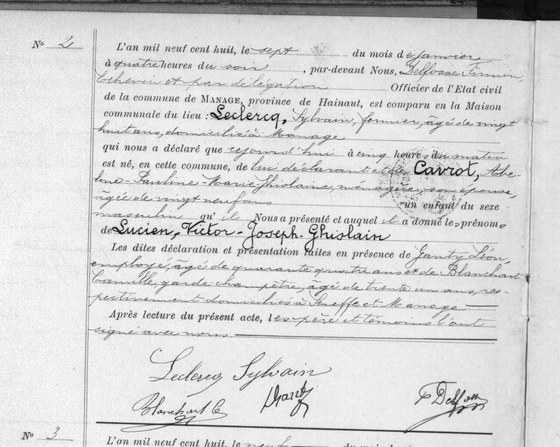 No 2
L'an mil neuf cent huit, le sept du mois de janvier
à quatre heures du soir, par-devant Nous, Delfosse Firmin,
Echevin et par délégation Officier de l'Etat civil
de la commune de MANAGE, province de Hainaut, est comparu en la Maison
communale du lieu: Leclercq, Sylvain, fermier, âgé de vingt
huit ans, domicilié à Manage
qui nous a déclaré que aujourd'hui à cinq heures du matin
est né, en cette commune, de lui déclarant et de Cavrot, Adeline
Pauline-Marie-Ghislaine, ménagère, son épouse,
âgée de vingt neuf ans un enfant du sexe
masculin qu'il Nous a présenté et auquel il a donné les prénoms
de Lucien, Victor-Joseph-Ghislain
Les dites déclaration et présentation faites en présence de Léon,
employé, âgé de quarante quatre ans et de Blanchart
Camille, garde champêtre, âgé de trente un ans, res-
pectivement domiciliés à Seneffe et Manage
Après lecture du présent acte, les père et témoins l'ont
signé avec nous
Leclercq Sylvain
Blanchart C
F Delfosse
No 3
L'an mil neuf cent huit, le du mois de